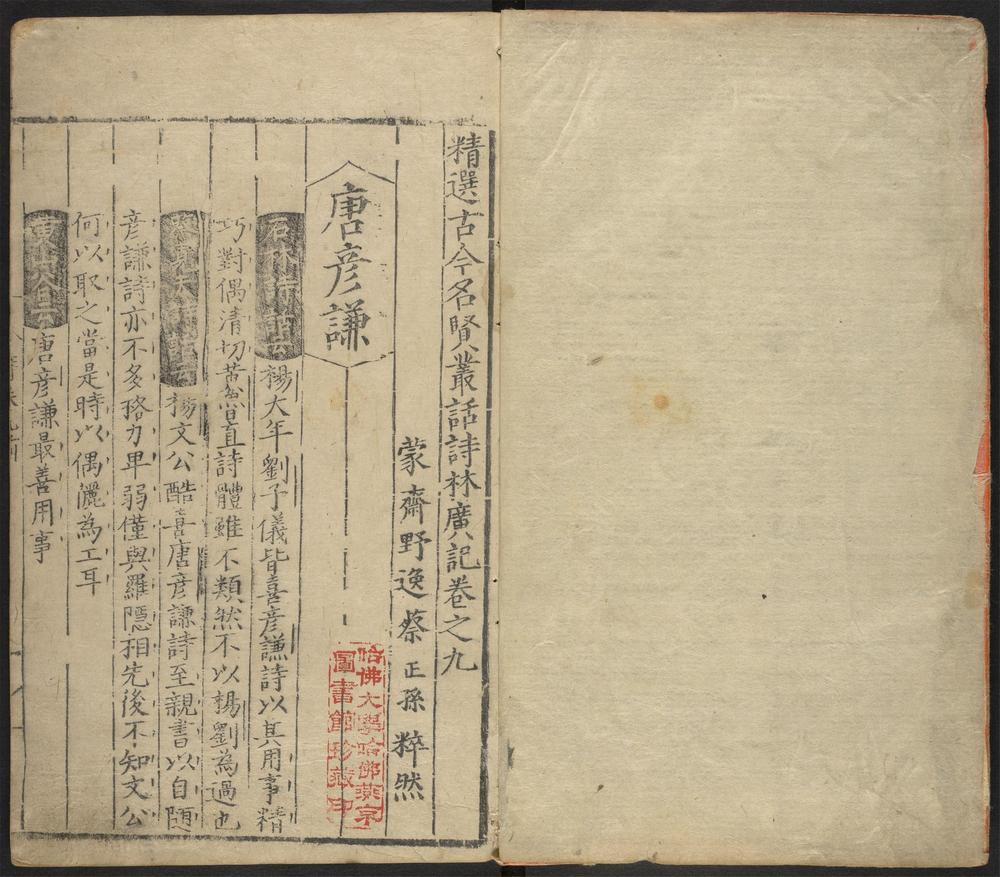 精選古今名賢叢話詩林廣記卷之九
蒙齋野逸蔡正孫粹然
唐彦謙
石林詩話云楊大年劉子儀皆喜彦謙詩以其用事精
巧對偶清切黃魯直詩體雖不類然不以楊劉為過也
楊文公酷喜唐彦謙詩至親書以自随
彦謙詩亦不多格力卑弱僅與羅隠相先後不知文公
何以取之當是時以偶儷為工耳
唐彦謙最善用事
哈佛大學哈佛燕京
圖書館珍藏印